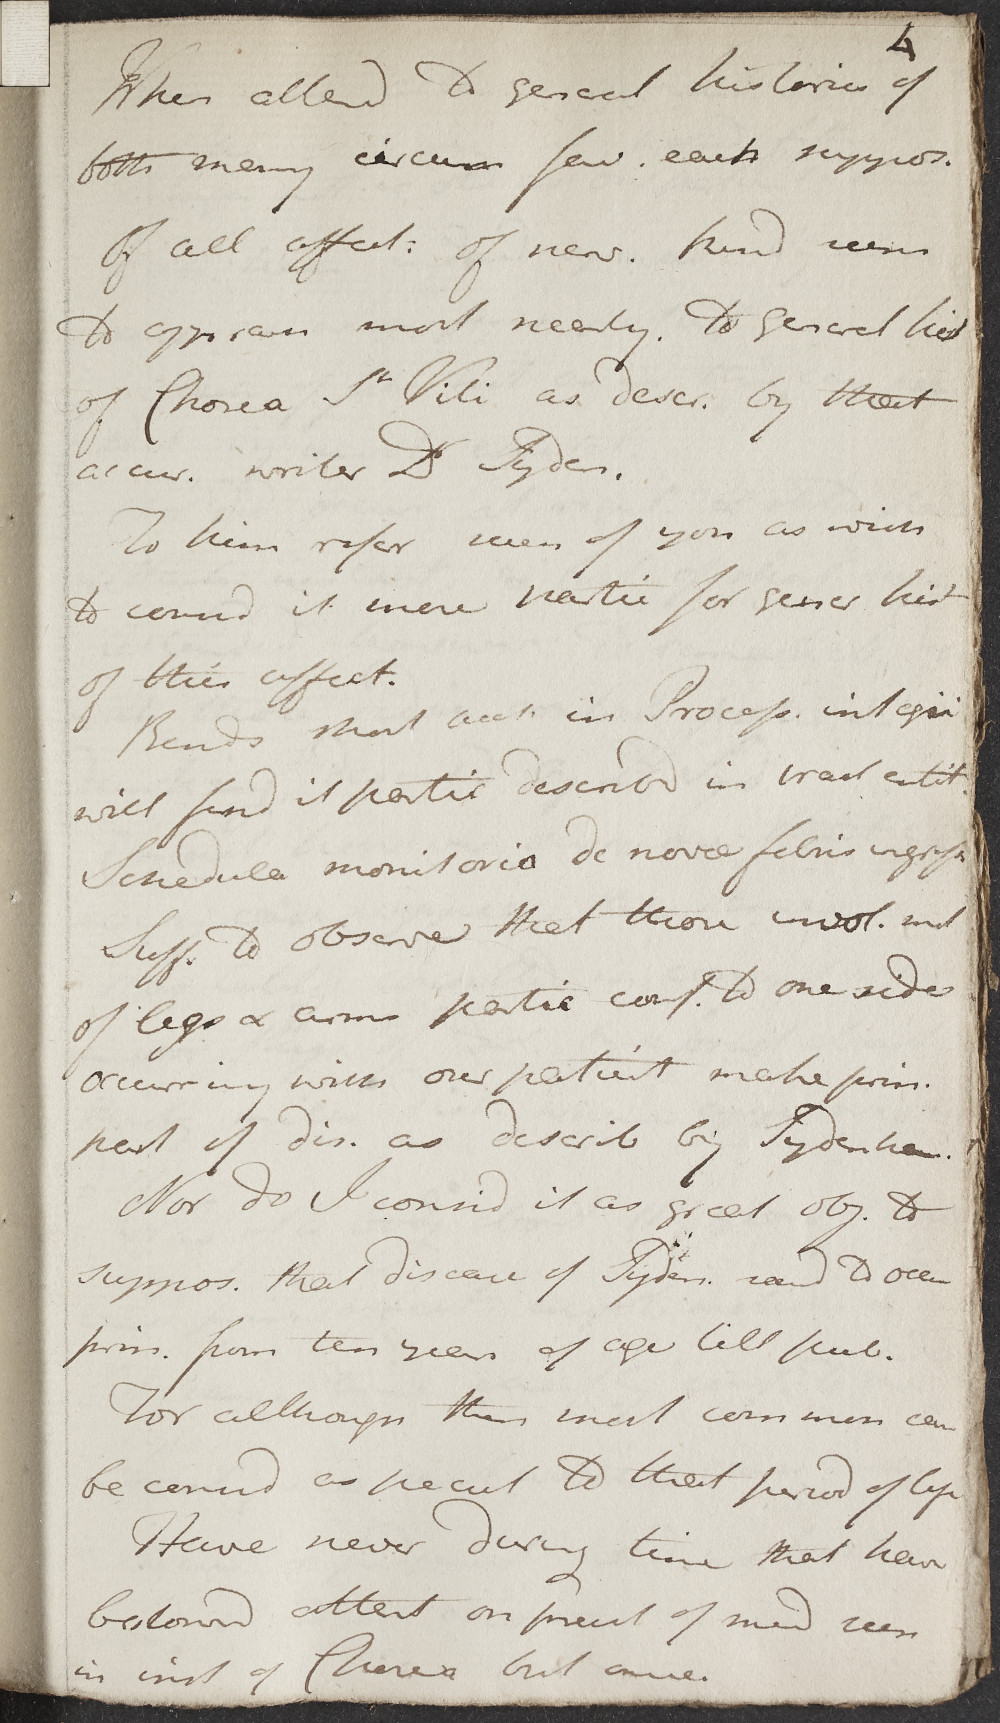 4
When attend to general histories of
both many circum fav. each suppos.
Of all affect: of nerv. kind seems
to approach most nearly. to general hist
of Chorea St Viti as descr. by that
accur. writer Dr Syden.
To him refer such of you as wish
to consid it more partic for gener hist
of this affect.
Besids short acct. in Process. integri
will find it partic describd in tract entit.
Schedula monitoria de novae febris ingress
Suff. to observe that those invol. mot
of legs & arms partic conf. to one side
occurring with our patient make prin.
part of dis. as describ by Sydenham.
Nor do I consid it as great obj. to
suppos. that disease of Syden. said to occur
prin. from ten years of age till pub.
For although then most common can
be consid as pecul to that period of life
Have never during time that have
bestowd attent on pract of med seen
in inst of Chorea but once.